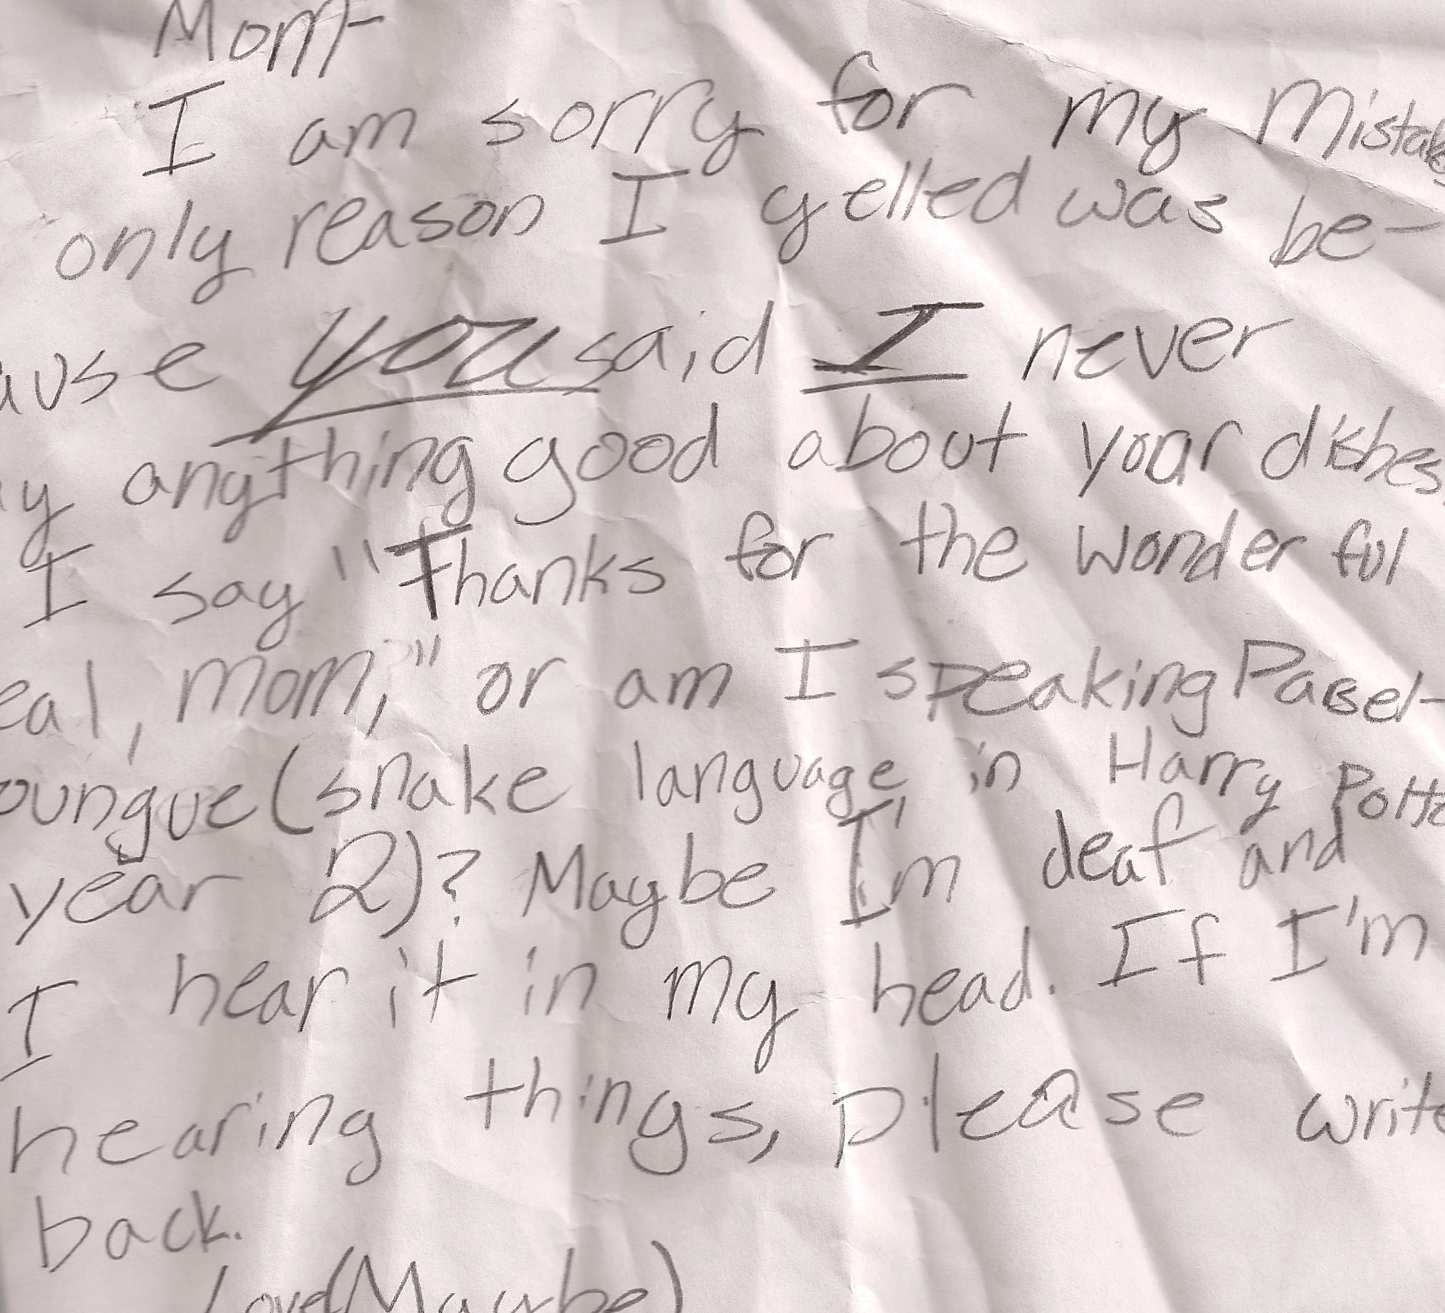 Mom-
I am sorry for my Mistak
only reason I yelled was be-
ause you said I never
y anything good about your dishes
I say "Thanks for the wonderful
eal, Mom," or am I speaking Parsel-
oungue (snake language in Harry Potte
year 2)? Maybe I'm deaf and
I hear it in my head. If I'm
hearing things, please write
back.
Love (Maybe)